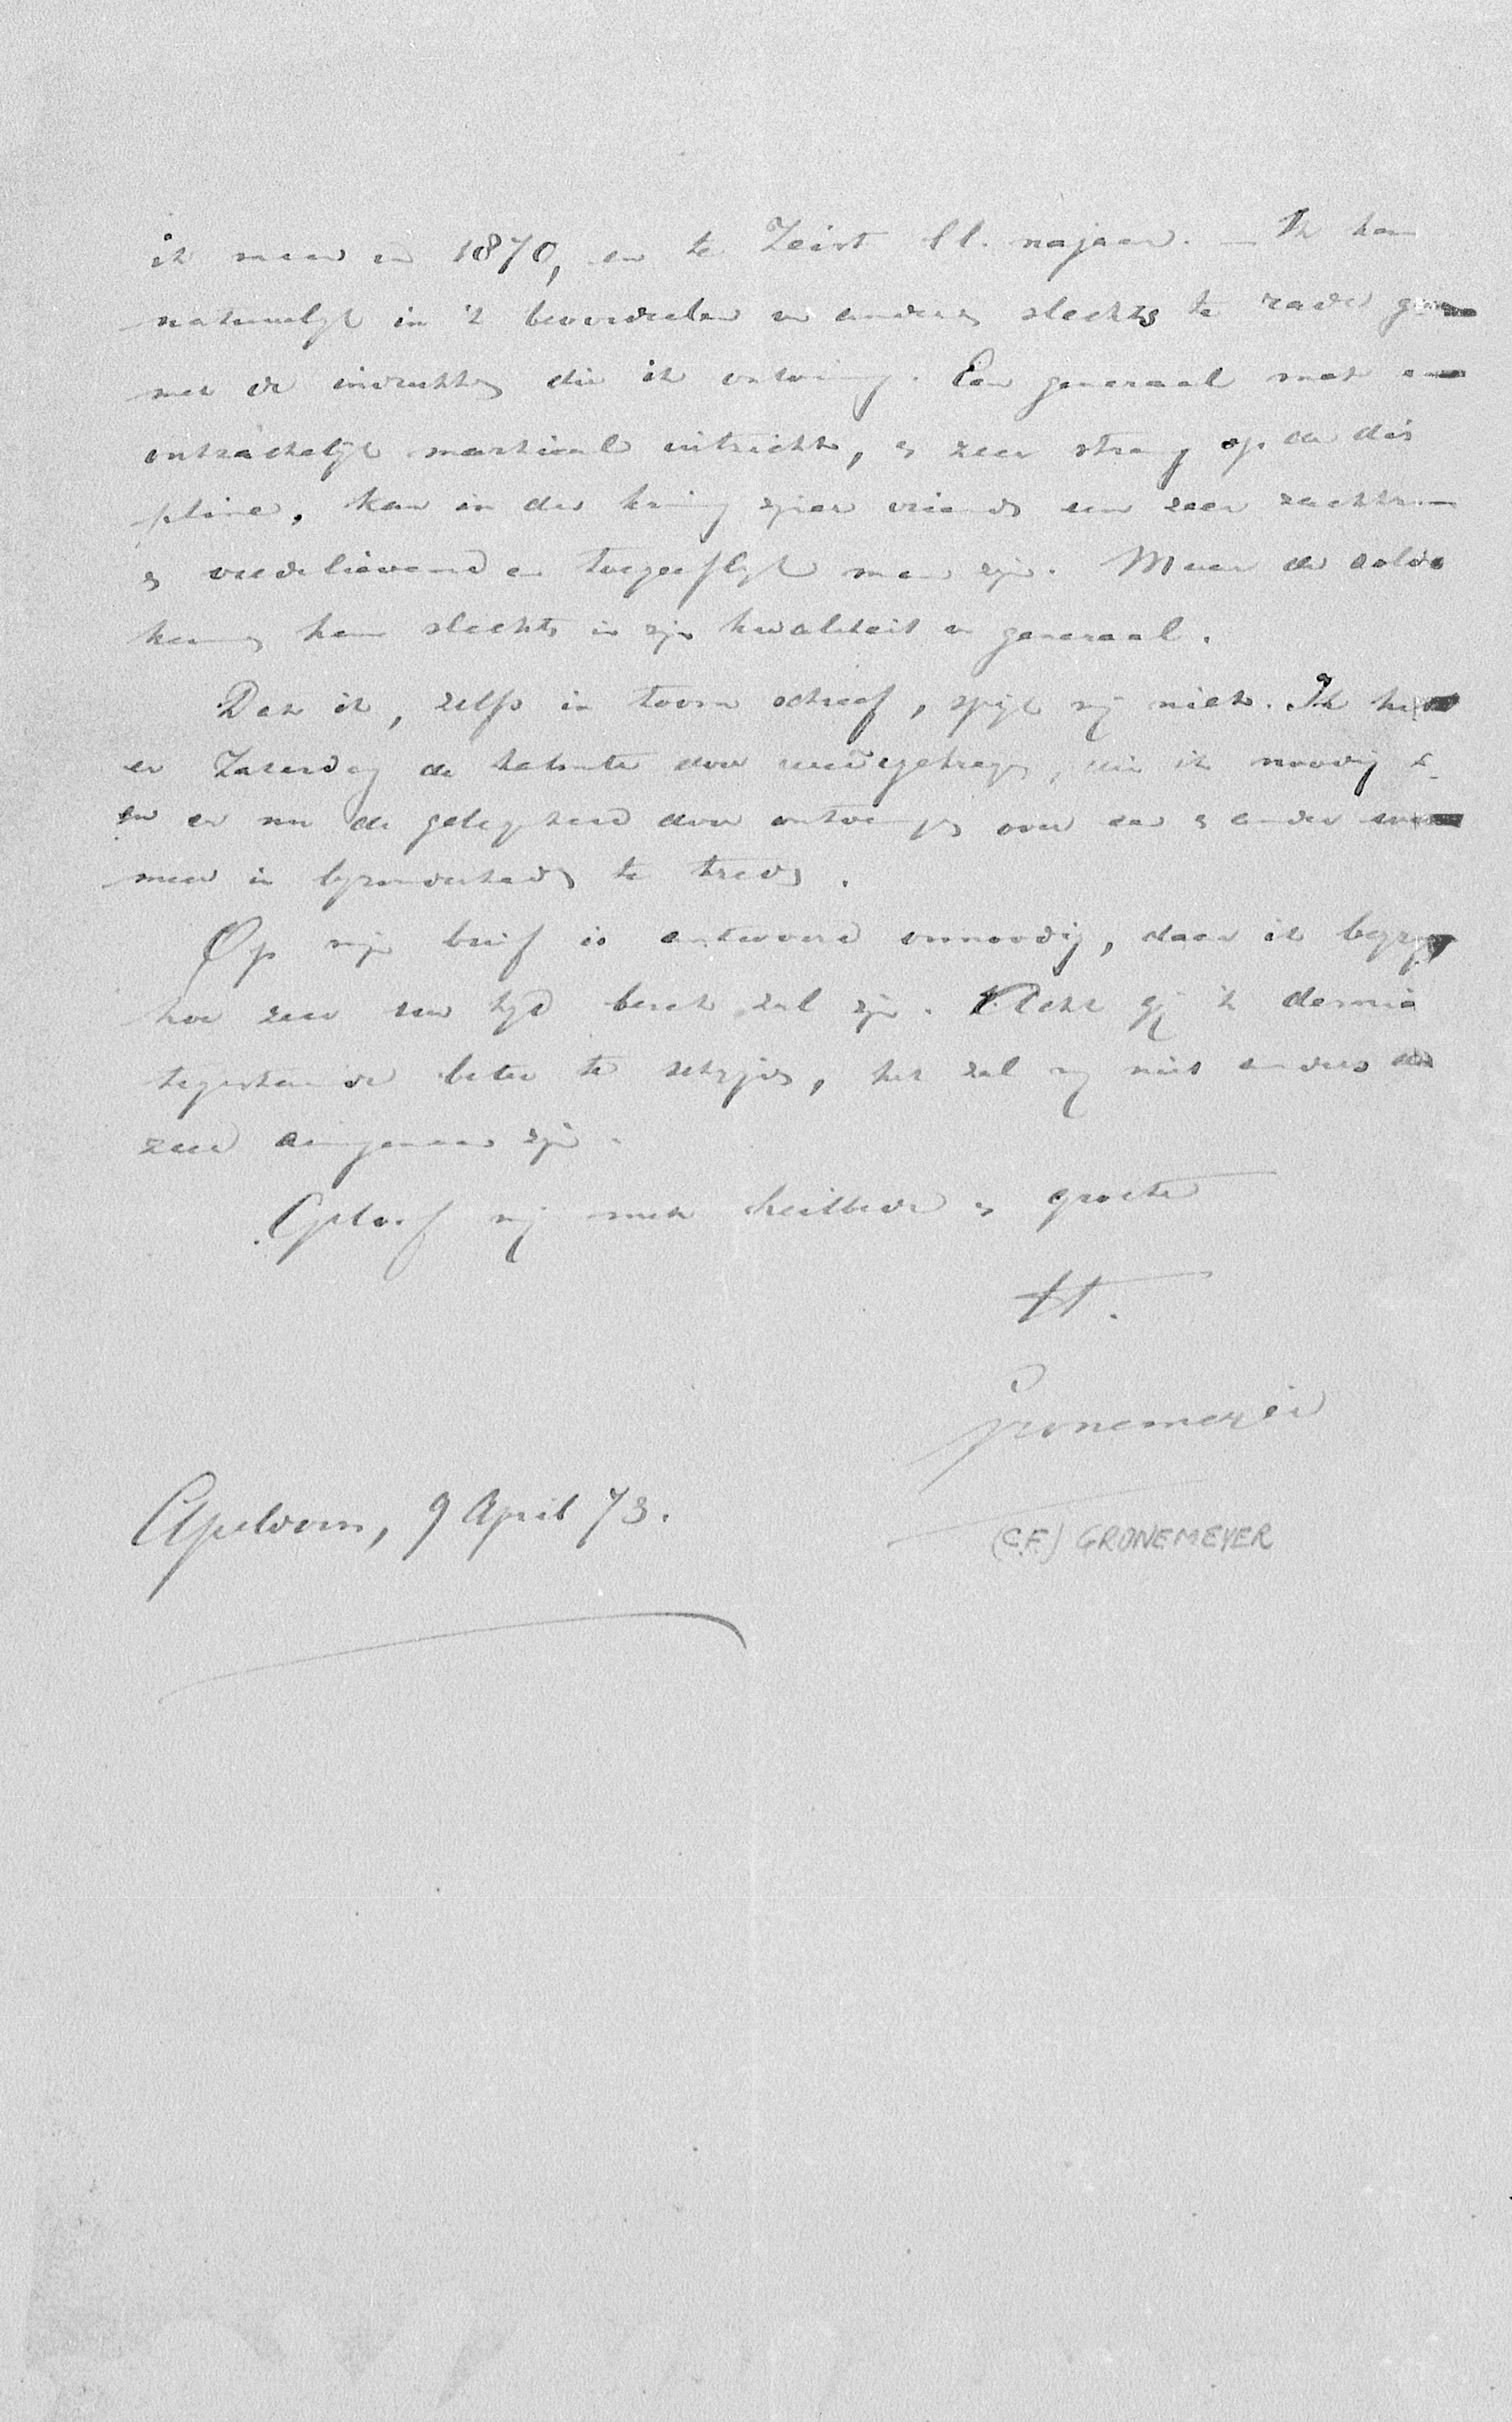 ik meen in 1870, en te Zeist ll. najaar. — Ik kan
natuurlijk in 't beoordeelen van anderen slechts te rade gaan
met de indrukken die ik ontving. Een generaal met een
martiaal uitzicht, & zeer streng op de dis
pline, kan in den kring zijner vrienden een zeer
& vredelievend en toegeeflijk man zijn. Maar de
kennen hem slechts in zijn kwaliteit van generaal.
Dat ik, zelfs in toorn schreef, spijt mij niet. Ik heb
er Zaterdag de door die ik noodig
en er nu de gelegenheid door ontvangen over een & ander
meer in bijzonderheden te treden.
Op mijn brief is antwoord onnoodig, daar ik begrijp
hoe zeer uw tijd bezet zal zijn. Acht gij 't
beter te schrijven, het zal mij niet anders dan
zeer aangenaam zijn.
Geloof mij met heilbede & groete
tt.
Gronemeyer
Apeldoorn, 9 April 73.
(C.F.) GRONEMEYER